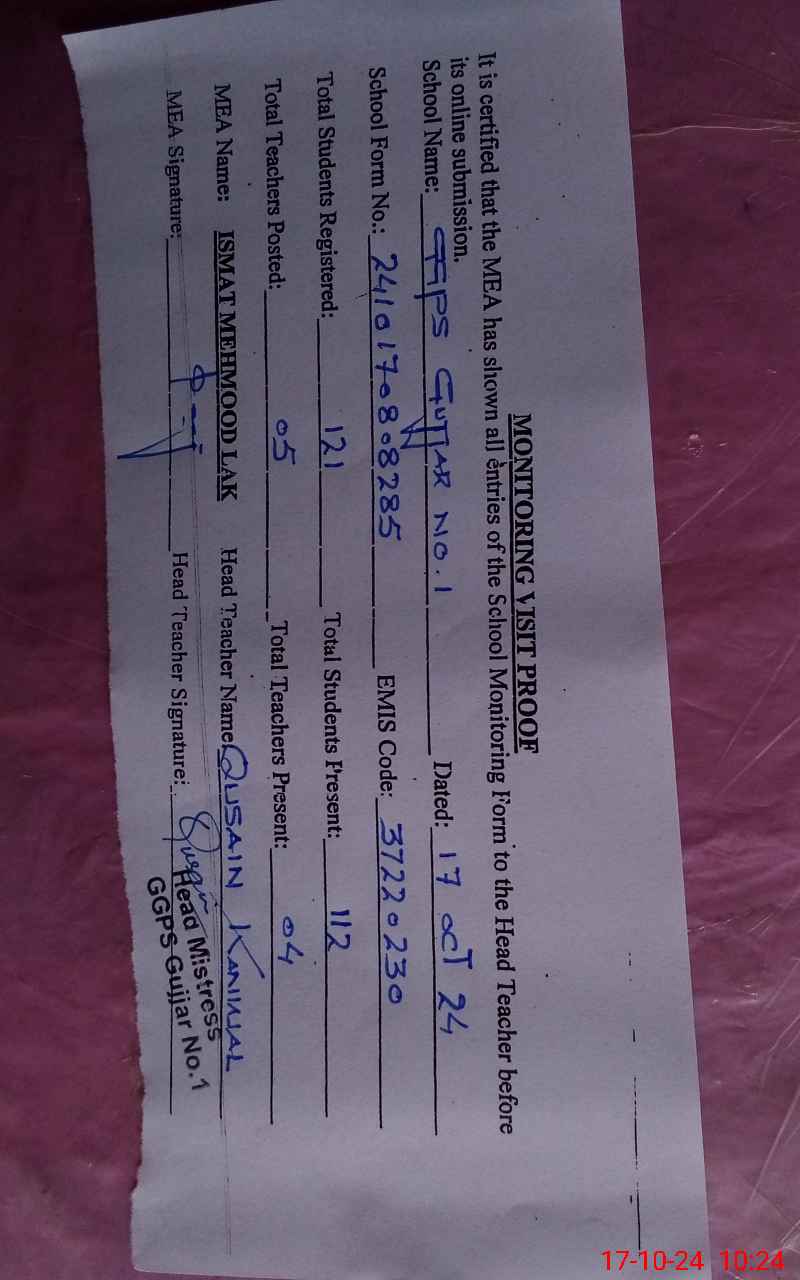 MONITORING VISIT PROOF
It is certified that the MEA has shown all entries of the School Monitoring Form to the Head Teacher before
its online submission.
School Name: GGPS GUJJAR NO.1 Dated: 17 OCT 24
School Form No.: 2410170808285 EMIS Code: 37220230
Total Students Registered: 121 Total Students Present: 112
Total Teachers Posted: 05 Total Teachers Present: 04
MEA Name: ISMAT MEHMOOD LAK Head Teacher Name: QUSAIN KANWAL
MEA Signature: Head Teacher Signature:
Head Mistress
GGPS Gujjar No.1
17-10-24 10:24